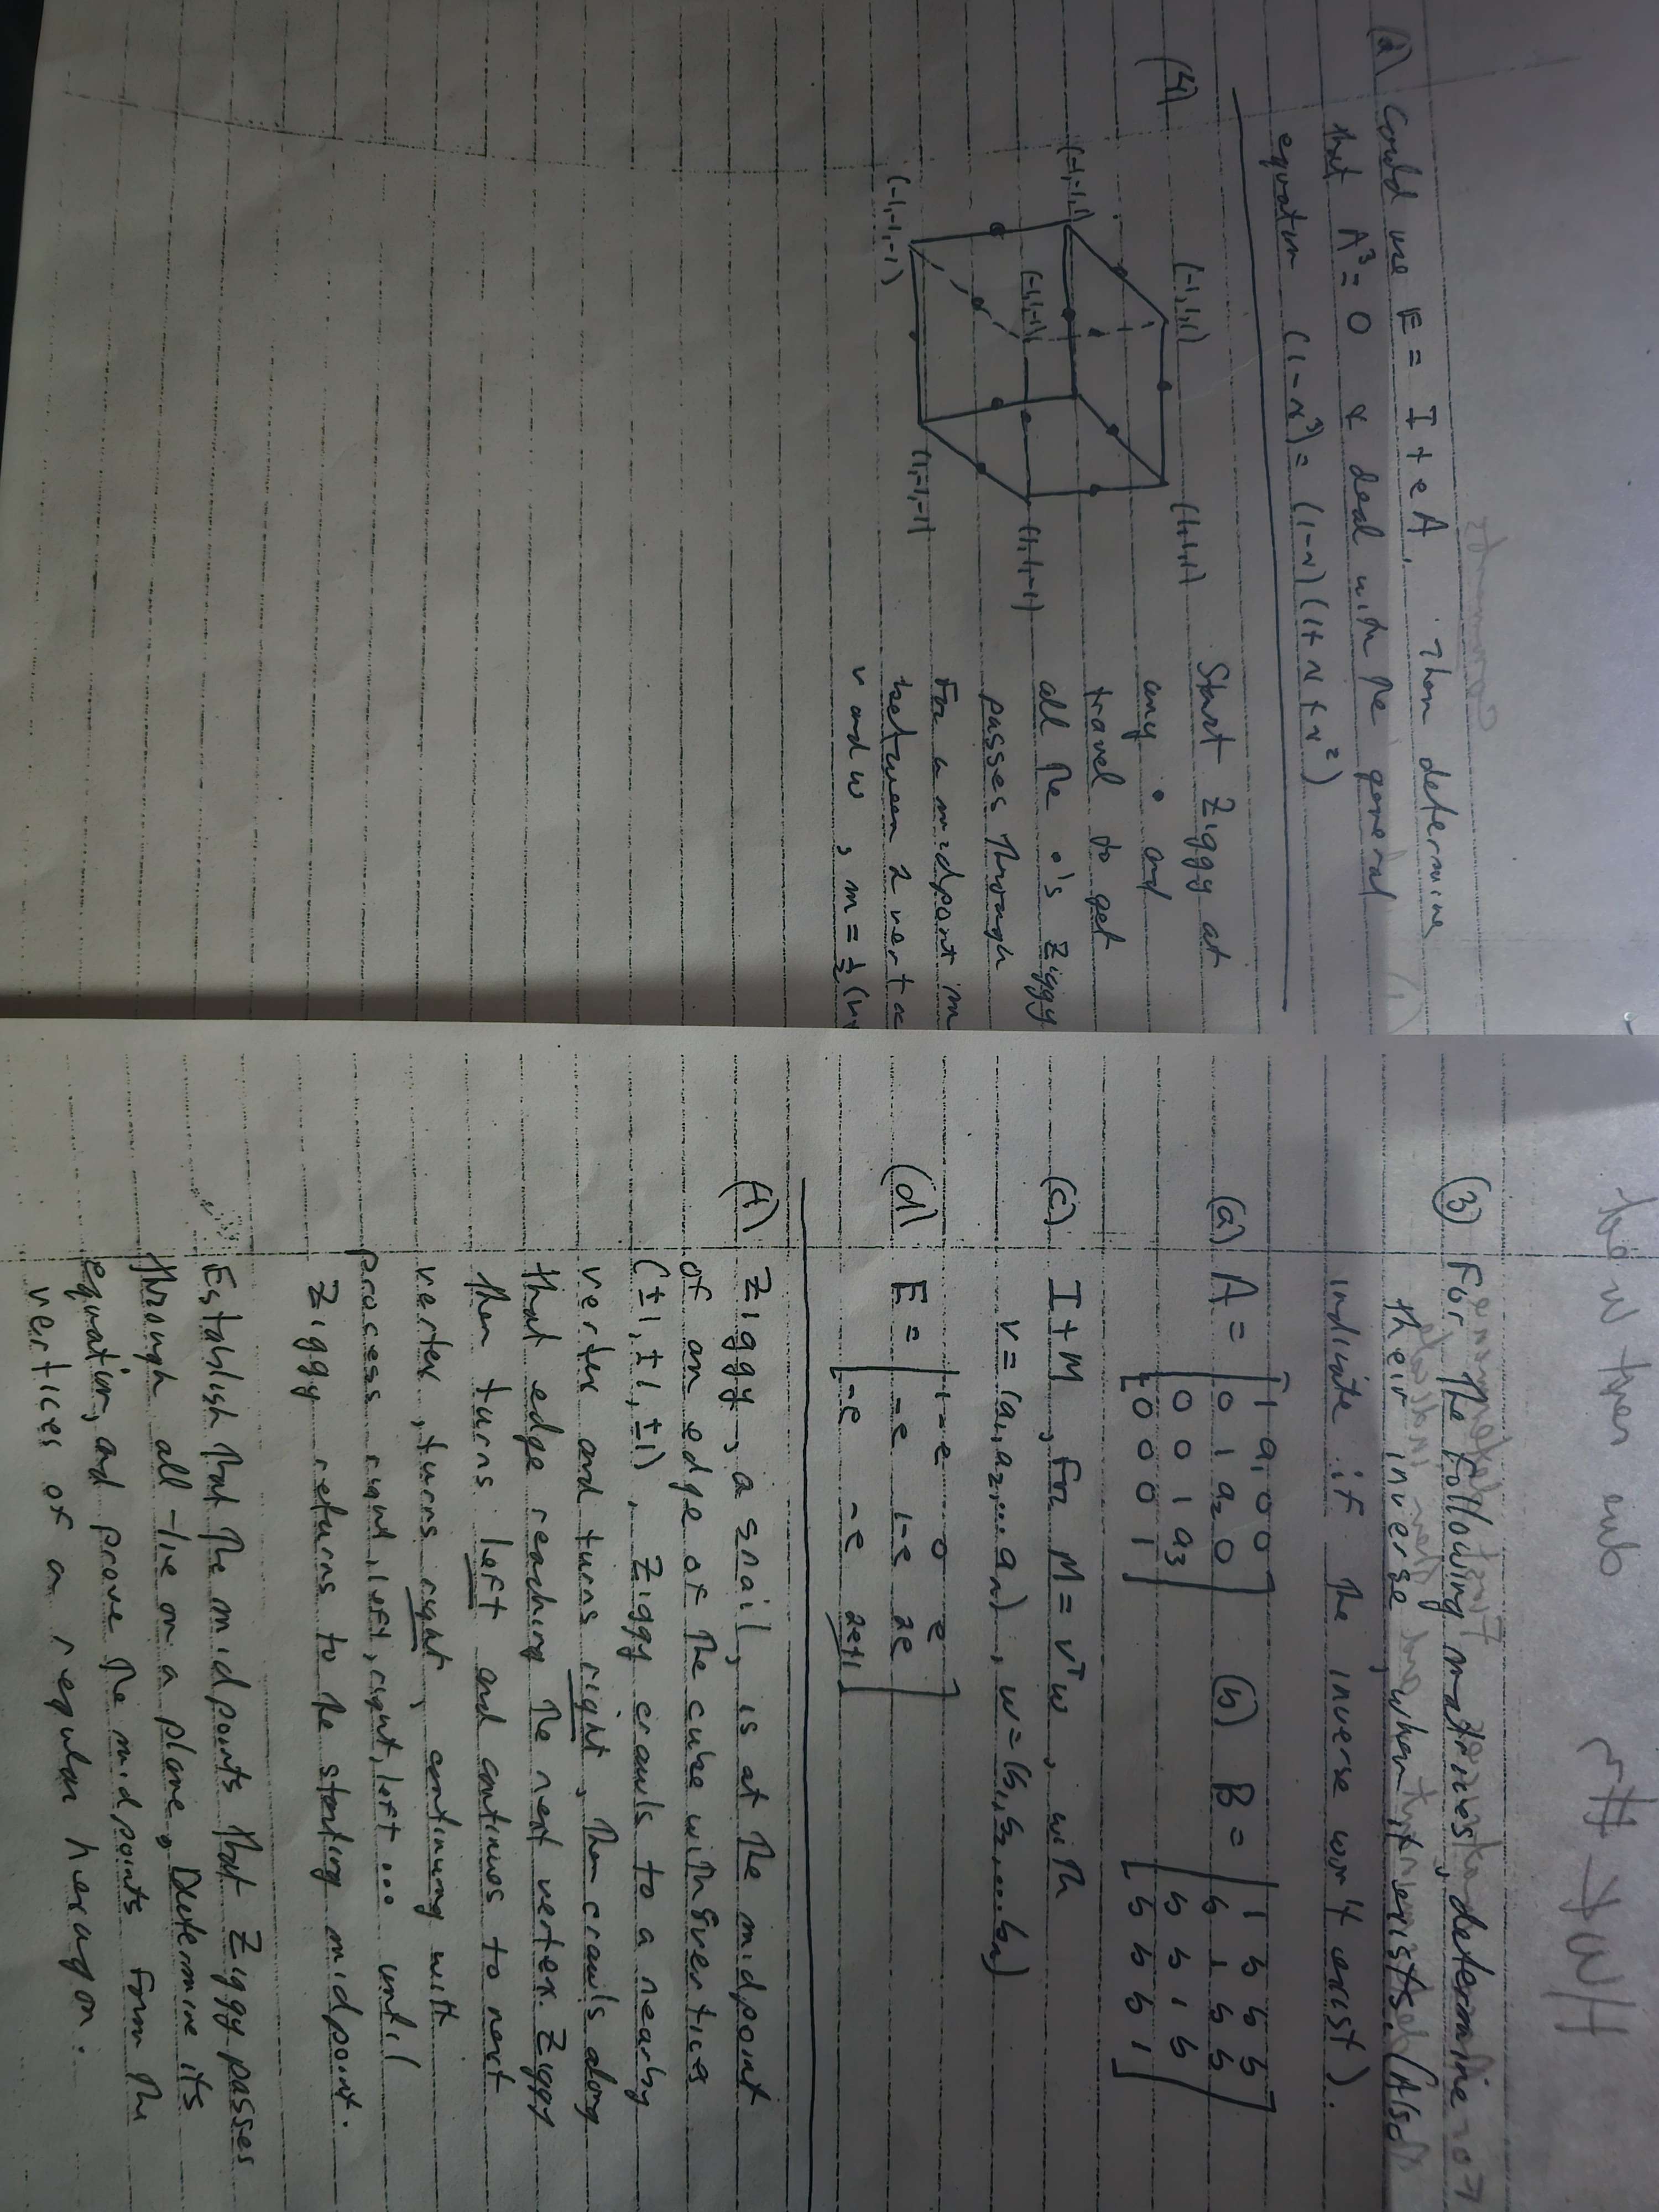 HW #2 due next week
(3) For the following matrices, determine
their inverse, when it exists. (Also
indicate if the inverse won't exist).
(a) A = [1 a₁ 0 0
0 1 a₂ 0
0 0 1 a₃
0 0 0 1]
(b) B = [1 b b b
b 1 b b
b b 1 b
b b b 1]
(c) I + M, for M = vᵀw, with
v = (a₁, a₂, ... aₙ), w = (b₁, b₂, ... bₙ)
(d) E = [1-e 0 e
-e 1-e 2e
-e -e 2e+1]
(4) Ziggy, a snail, is at the midpoint
of an edge of the cube with 8 vertices
(±1, ±1, ±1). Ziggy crawls to a nearby
vertex and turns right, then crawls along
that edge reaching the next vertex. Ziggy
then turns left and continues to next
vertex, turns right, continuing with
process right, left, right, left ... until
Ziggy returns to the starting midpoint.
Establish that the midpoints that Ziggy passes
through all lie on a plane. Determine its
equation, and prove the midpoints form the
vertices of a regular hexagon.
(d) Could use E = I + eA, then determine
that A³ = 0 & deal with the general
equation (1-x³) = (1-x)(1+x+x²)
(4)
(-1,1,1)
(1,1,1)
(-1,-1,1)
(-1,1,-1)
(1,1,-1)
(-1,-1,-1)
(1,-1,-1)
Start Ziggy at
any • and
travel to get
all the •'s Ziggy
passes through
For a midpoint m
between 2 vertex
v and w, m = ½(v+